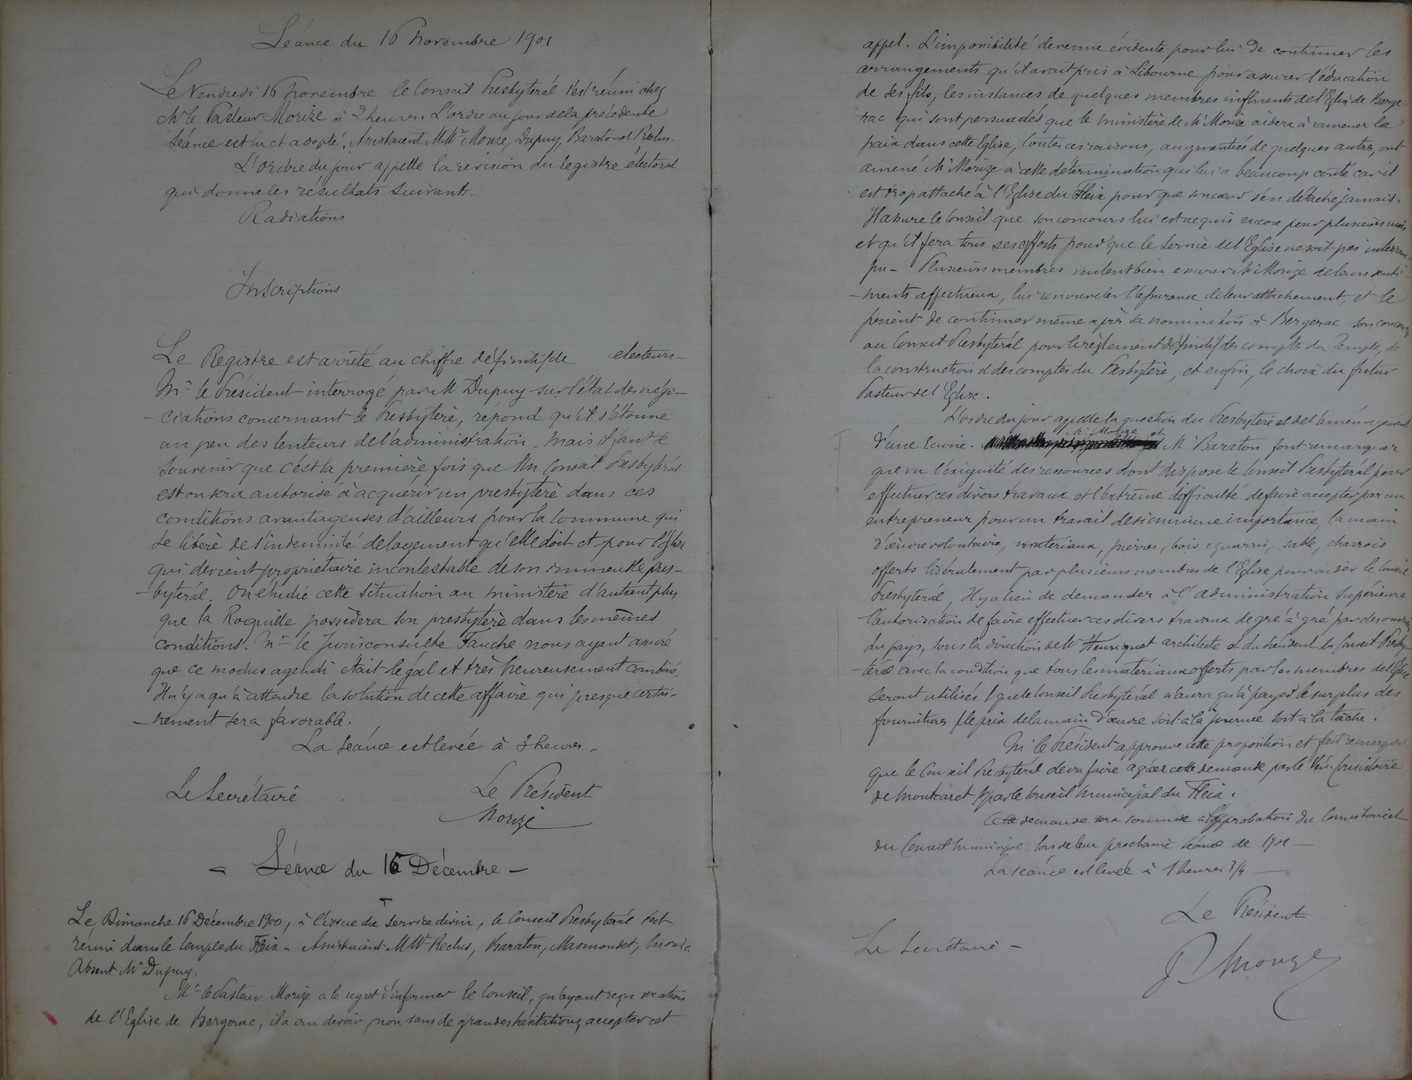 Séance du 16 Novembre 1901
Le Vendredi 16 Novembre le Conseil Presbytéral s'est réuni chez
Mr le Pasteur Morize à 2 heures. L'ordre du jour de la précédente
Séance est lu et adopté. Assistaient MMrs Morize, Dupuy, Baraton et Reclus.
L'Ordre du jour appelle la revision du Registre électoral
qui donne les résultats suivant.
Radiations
Inscriptions
Le Registre est arrêté au chiffre définitif de electeurs
Mr le Président interrogé par M Dupuy sur l'état des négo-
-ciations concernant le Presbytère, répond qu'il s'étonne
un peu des lenteurs de l'administration. Mais il faut se
souvenir que c'est la première fois que un Conseil Presbytéral
est ou sera autorisé à acquérir un presbytère dans ces
conditions avantageuses d'ailleurs pour la Commune qui
se libère de l'indemnité de logement qu'elle doit et pour l'Eglise
qui devient propriétaire incontestable de son immeuble pres-
-bytéral. On étudie cette situation au ministère d'autant plus
que la Roquille possèdera son presbytère dans les mêmes
conditions. Mr le Jurisconsulte Fauche nous ayant assuré
que ce modus agendi était légal et très heureusement combiné
Il n'y a qu'à attendre la solution de cette affaire qui presque certai-
-nement sera favorable.
La séance est levée à 3 heures -
Le Secrétaire Le Président
Morize
- Séance du 16 Décembre -
Le Dimanche 16 Décembre 1900, à l'issue du service divin, le Conseil Presbytéral s'est
réuni dans le temple du Fleix - Assistaient MMrs Reclus, Baraton, Morize
Absent Mr Dupuy.
Mr le Pasteur Morize a le regret d'informer le Conseil, qu'ayant reçu vocation
de l'Eglise de Bergerac, il a cru devoir non sans de grandes hésitations, accepter cet
appel. L'impossibilité devenue évidente pour lui de continuer les
arrangements qu'il avait pris à Libourne pour assurer l'éducation
de ses fils, les instances de quelques membres influents de l'Eglise de Berge-
-rac qui sont persuadés que le ministère de Mr Morize aidera à ramener la
paix dans cette Eglise, toutes ces raisons, augmentées de quelques autres, ont
amené Mr Morize à cette détermination qui lui a beaucoup couté car il
est trop attaché à l'Eglise du Fleix pour que son cœur s'en détache jamais.
Il assure le Conseil que son concours lui est acquis encore pour plusieurs mois
et qu'il fera tous ses efforts pour que le Service de l'Eglise ne soit pas interrom-
pu - Plusieurs membres veulent bien assurer Mr Morize de leurs senti-
-ments affectueux, lui renouveler l'assurance de leur attachement, et le
prient de continuer même après sa nomination à Bergerac son concours
au Conseil Presbytéral pour le règlement définitif des comptes du temple, de
la construction et des comptes du Presbytère, et enfin, le choix du futur
Pasteur de l'Eglise.
L'ordre du jour appelle la question du Presbytère et de l'aménagement
d'une Mr Morize et M Baraton font remarquer
que vu l'exiguité des ressources dont dispose le Conseil Presbytéral pour
effectuer ces divers travaux et l'extrême difficulté de faire accepter par un
entrepreneur pour un travail de si minime importance, la main
d'œuvre volontaire, matériaux, pierres, bois equarri, sable, charrois
offerts libéralement par plusieurs membres de l'Eglise pour aider le Conseil
Presbytéral, il y a lieu de demander à l'administration Supérieure
l'autorisation de faire effectuer ces divers travaux de gré à gré par des ouvriers
du pays, sous la direction de M architecte et du Président du Conseil Presby-
téral avec la condition que tous les matériaux offerts par les membres de l'Eglise
seront utilisés & que le Conseil Presbytéral n'aura qu'à payer le surplus des
fournitures & le prix de la main d'œuvre soit à la journée soit à la tâche.
M. le Président approuve cette proposition et fait remarquer
que le Conseil Presbytéral devra faire agréer cette demande par le Consistoire
de Montcaret & par le Conseil Municipal du Fleix.
Cette demande sera soumise à l'approbation du Consistoire et
du Conseil municipal lors de leur prochaine séance de 1901 -
La séance est levée à 1 heures 3/4 -
Le Président
Le Secrétaire -
Morize